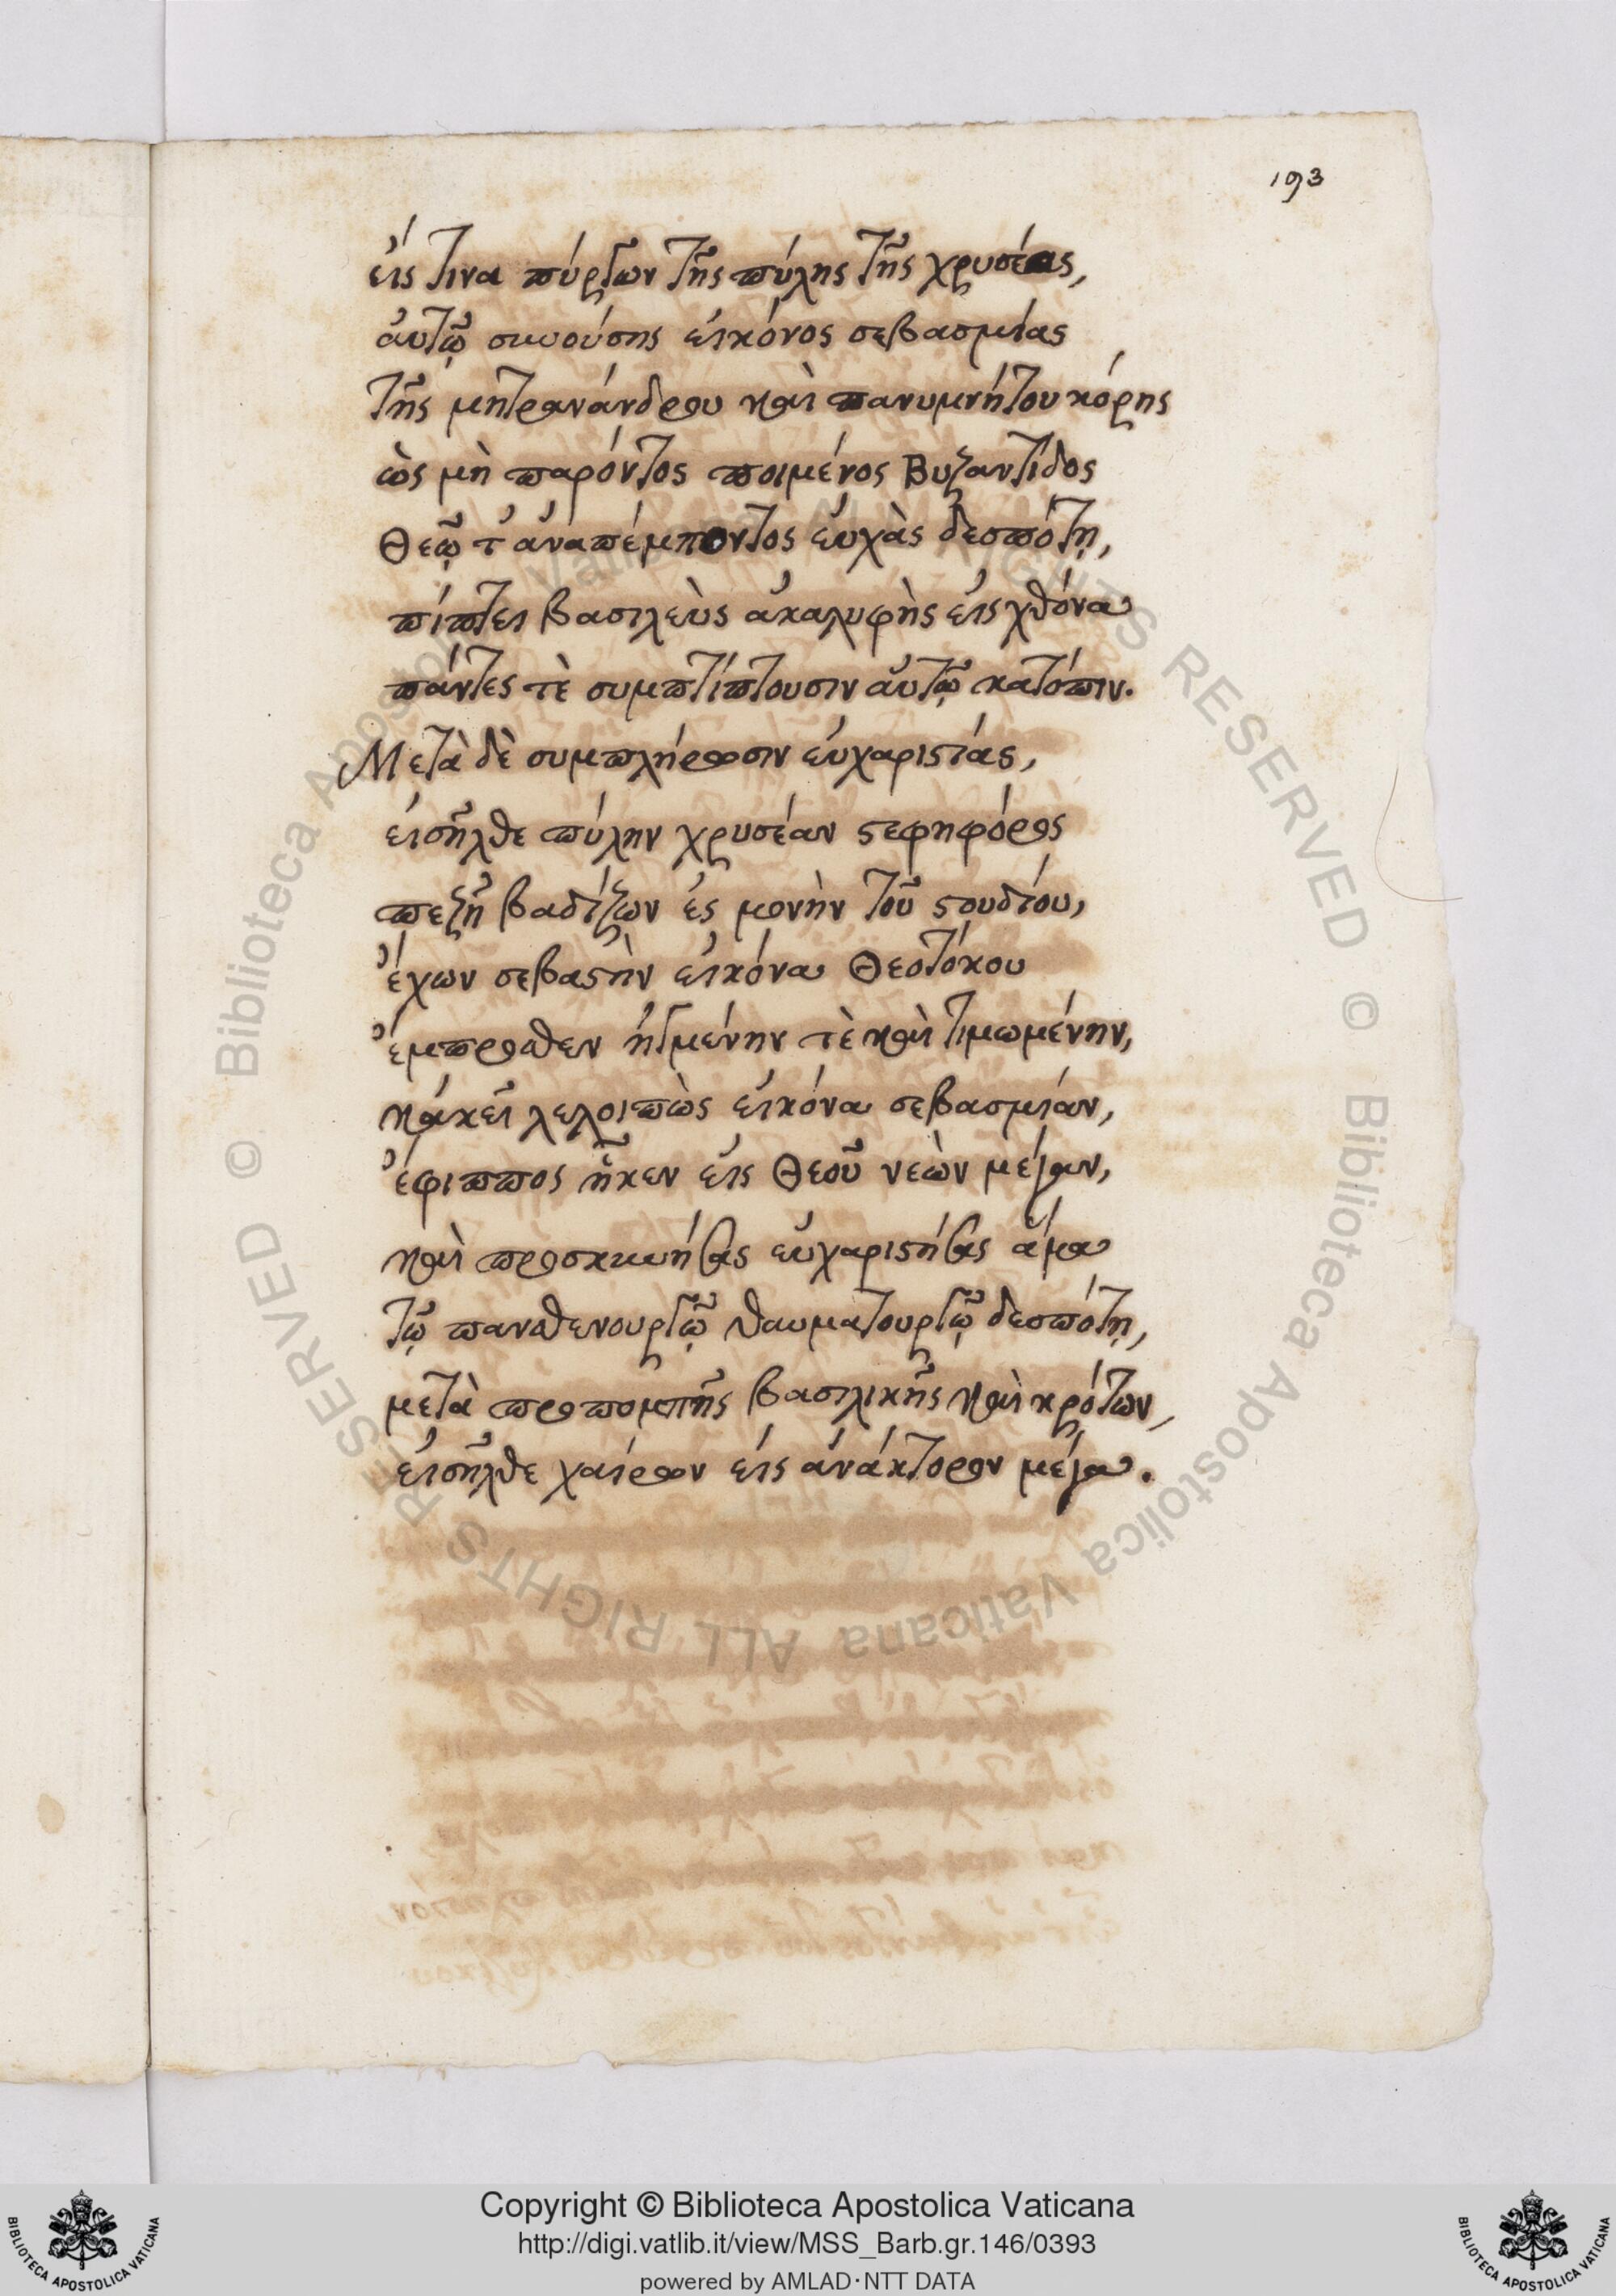 193
εἴς τινα πύργων τῆς πύλης τῆς χρυσέας,
αὐτῷ συνούσης εἰκόνος σεβασμίας
τῆς μητρανάνδρου καὶ πανυμνήτου κόρης
ὡς μὴ παρόντος ποιμένος Βυζαντίδος
Θεῷ τ' ἀναπέμποντος εὐχὰς δεσπότῃ,
πίπτει βασιλεὺς ἀκαλυφὴς εἰς χθόνα
πάντες τὲ συμπίπτουσιν αὐτῷ κατόπιν.
Μετὰ δὲ συμπλήρωσιν εὐχαριστίας,
εἰσῆλθε πύλην χρυσέαν στεφηφόρος
πεζῇ βαδίζων ἐς μονὴν τοῦ στουδίου,
ἔχων σεβαστὴν εἰκόνα Θεοτόκου
ἔμπροσθεν ἠγμένην τὲ καὶ τιμωμένην,
κἀκεῖ λελοιπὼς εἰκόνα σεβασμίαν,
ἔφιππος ἧκεν εἰς Θεοῦ νεὼν μέγαν,
καὶ προσκυνήσας εὐχαριστήσας ἅμα
τῷ πανσθενουργῷ θαυματουργῷ δεσπότῃ,
μετὰ προπομπῆς βασιλικῆς καὶ κρότων,
εἰσῆλθε χαίρων εἰς ἀνάκτορον μέγα.
© Biblioteca Apostolica Vaticana ALL RIGHTS RESERVED
© Biblioteca Apostolica Vaticana ALL RIGHTS RESERVED
Copyright © Biblioteca Apostolica Vaticana
http://digi.vatlib.it/view/MSS_Barb.gr.146/0393
powered by AMLAD·NTT DATA
BIBLIOTECA APOSTOLICA VATICANA
BIBLIOTECA APOSTOLICA VATICANA